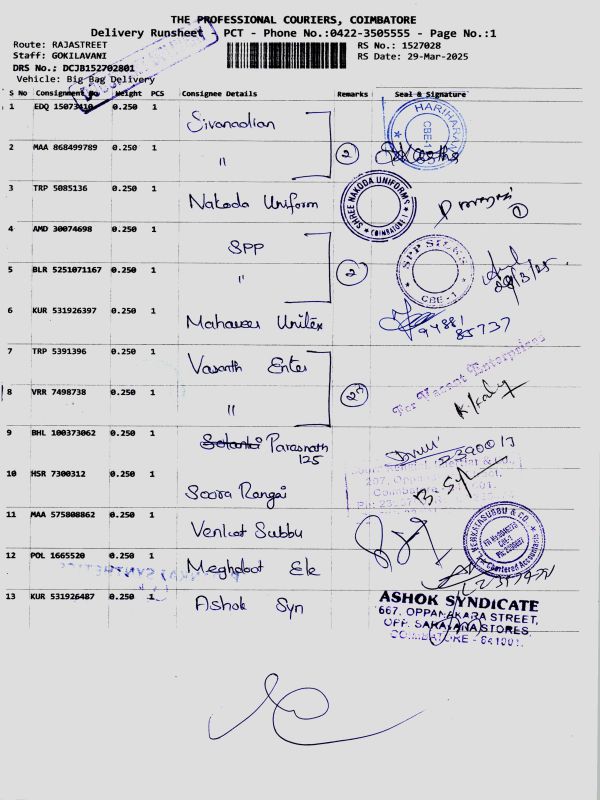 THE PROFESSIONAL COURIERS, COIMBATORE
Delivery Runsheet - PCT - Phone No.:0422-3505555 - Page No.:1
Route: RAJASTREET
RS No.: 1527028
Staff: GOKILAVANI
RS Date: 29-Mar-2025
DRS No.: DCJB152702801
Vehicle: Big Bag Delivery
S No Consignment No Weight PCS Consignee Details Remarks Seal & Signature
1 EDQ 15073410 0.250 1 Sivanadian
HARIHARAN
CBE-1
2 MAA 868499789 0.250 1 " 2
3 TRP 5085136 0.250 1 Nakoda Uniform
SHREE NAKODA UNIFORMS
COIMBATORE-1
4 AMD 30074698 0.250 1 SPP
SPP SILKS
CBE-1
5 BLR 5251071167 0.250 1 " 2
29/3/25.
6 KUR 531926397 0.250 1 Mahaveer Unitex
94881
85737
7 TRP 5391396 0.250 1 Vasanth Enter
For Vasant Enterprises
8 VRR 7498738 0.250 1 " 2
9 BHL 100373062 0.250 1 Solanki Parasnath
125
10 HSR 7300312 0.250 1 Soora Rangai
11 MAA 575808862 0.250 1 Venkat Subbu
VENKATASUBBU & CO.
CBE-1
Chartered Accountants
12 POL 1665520 0.250 1 Meghdoot Ele
13 KUR 531926487 0.250 1 Ashok Syn
ASHOK SYNDICATE
667, OPPANAKARA STREET,
OPP. SARAVANA STORES,
COIMBATORE - 641001.